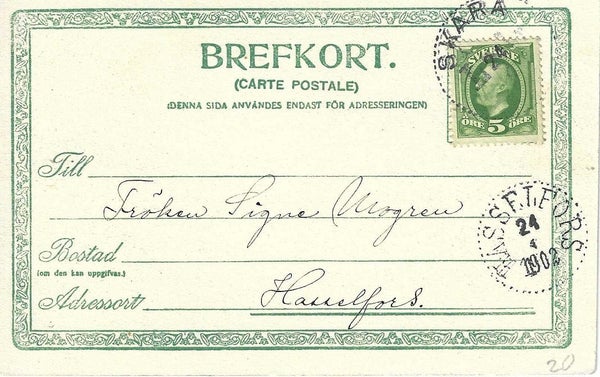 SKARA
BREFKORT.
SVERIGE
(CARTE POSTALE)
(DENNA SIDA ANVÄNDES ENDAST FÖR ADRESSERINGEN)
ÖRE 5 ÖRE
Till
Fröken Signe Mogren
HASSELFORS
24
4
1902
Bostad
(om den kan uppgifvas.)
Adressort Hasselfors.
20